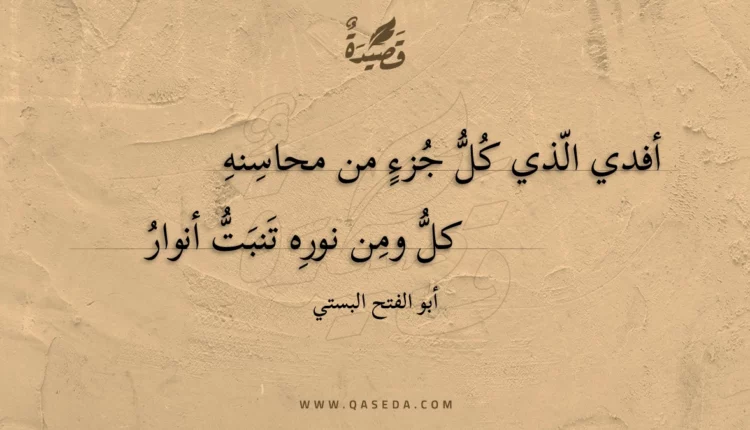 قَصِيْدَةٌ
أفدي الّذي كُلُّ جُزءٍ من محاسِنهِ
كلُّ ومِن نورِه تَنبَتُّ أنوارُ
أبو الفتح البستي
WWW.QASEDA.COM